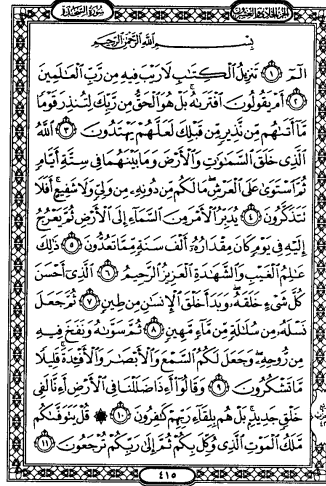 الجزء الحادي والعشرون سورة السجدة
بِسْمِ اللَّهِ الرَّحْمَٰنِ الرَّحِيمِ
الٓمٓ ١ تَنزِيلُ الْكِتَابِ لَا رَيْبَ فِيهِ مِن رَّبِّ الْعَالَمِينَ
٢ أَمْ يَقُولُونَ افْتَرَاهُ بَلْ هُوَ الْحَقُّ مِن رَّبِّكَ لِتُنذِرَ قَوْمًا
مَّا أَتَاهُم مِّن نَّذِيرٍ مِّن قَبْلِكَ لَعَلَّهُمْ يَهْتَدُونَ ٣ اللَّهُ
الَّذِي خَلَقَ السَّمَاوَاتِ وَالْأَرْضَ وَمَا بَيْنَهُمَا فِي سِتَّةِ أَيَّامٍ
ثُمَّ اسْتَوَىٰ عَلَى الْعَرْشِ مَا لَكُم مِّن دُونِهِ مِن وَلِيٍّ وَلَا شَفِيعٍ أَفَلَا
تَتَذَكَّرُونَ ٤ يُدَبِّرُ الْأَمْرَ مِنَ السَّمَاءِ إِلَى الْأَرْضِ ثُمَّ يَعْرُجُ
إِلَيْهِ فِي يَوْمٍ كَانَ مِقْدَارُهُ أَلْفَ سَنَةٍ مِّمَّا تَعُدُّونَ ٥ ذَٰلِكَ
عَالِمُ الْغَيْبِ وَالشَّهَادَةِ الْعَزِيزُ الرَّحِيمُ ٦ الَّذِي أَحْسَنَ
كُلَّ شَيْءٍ خَلَقَهُ وَبَدَأَ خَلْقَ الْإِنسَانِ مِن طِينٍ ٧ ثُمَّ جَعَلَ
نَسْلَهُ مِن سُلَالَةٍ مِّن مَّاءٍ مَّهِينٍ ٨ ثُمَّ سَوَّاهُ وَنَفَخَ فِيهِ
مِن رُّوحِهِ وَجَعَلَ لَكُمُ السَّمْعَ وَالْأَبْصَارَ وَالْأَفْئِدَةَ قَلِيلًا
مَّا تَشْكُرُونَ ٩ وَقَالُوا أَإِذَا ضَلَلْنَا فِي الْأَرْضِ أَإِنَّا لَفِي
خَلْقٍ جَدِيدٍ بَلْ هُم بِلِقَاءِ رَبِّهِمْ كَافِرُونَ ١٠ ۞ قُلْ يَتَوَفَّاكُم
مَّلَكُ الْمَوْتِ الَّذِي وُكِّلَ بِكُمْ ثُمَّ إِلَىٰ رَبِّكُمْ تُرْجَعُونَ ١١
٤١٥